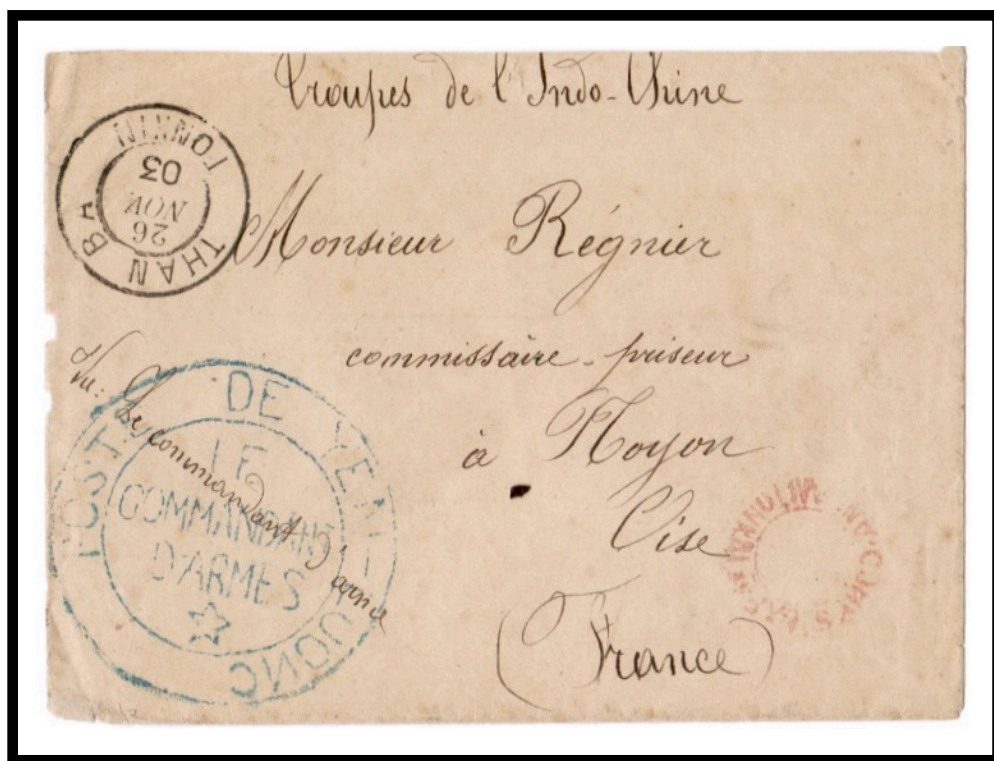 Troupes de l'Indo-Chine
THAN BA
26
NOV
03
TONKIN
Monsieur Régnier
commissaire-priseur
à Noyon
Oise
(France)
Vu: Le commandant d'armes
POSTE DE YEN-LUONG
LE
COMMANDANT
D'ARMES